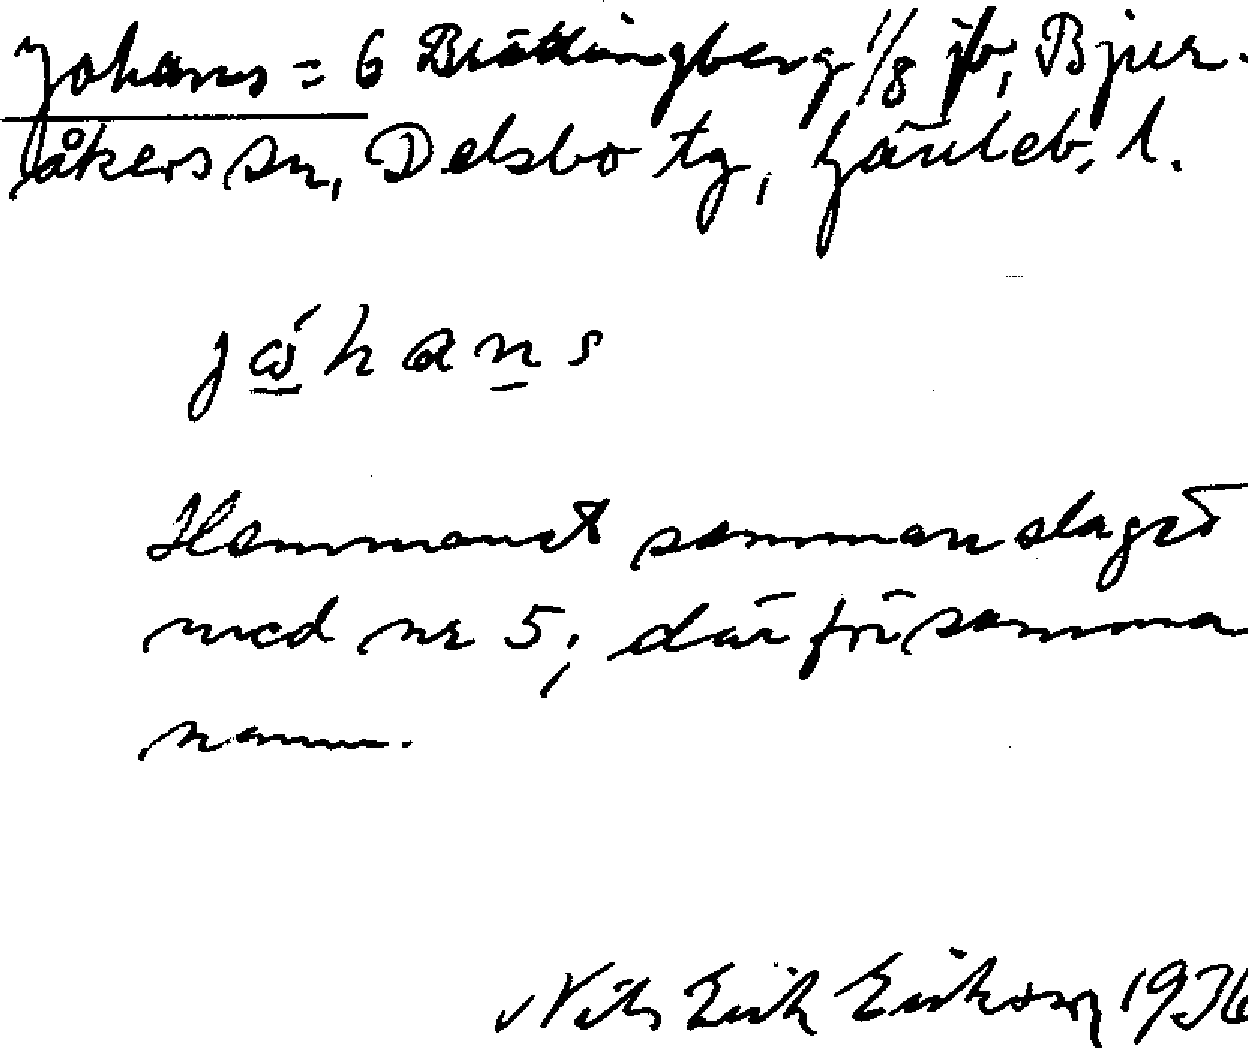 Johans = 6 Brättingberg 1/8 jb, Bjur-
åkers sn, Delsbo tg, Gävleb. l.
jώhans
Hemmanet sammanslaget
med nr 5; därför samma
namn.
Nils Erik Erikson 1936